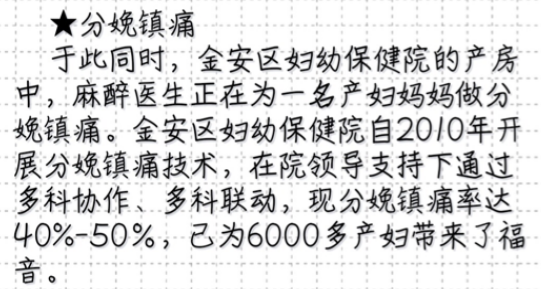 ★分娩镇痛
于此同时，金安区妇幼保健院的产房
中，麻醉医生正在为一名产妇妈妈做分
娩镇痛。金安区妇幼保健院自2010年开
展分娩镇痛技术，在院领导支持下通过
多科协作、多科联动，现分娩镇痛率达
40%-50%，己为6000多产妇带来了福
音。